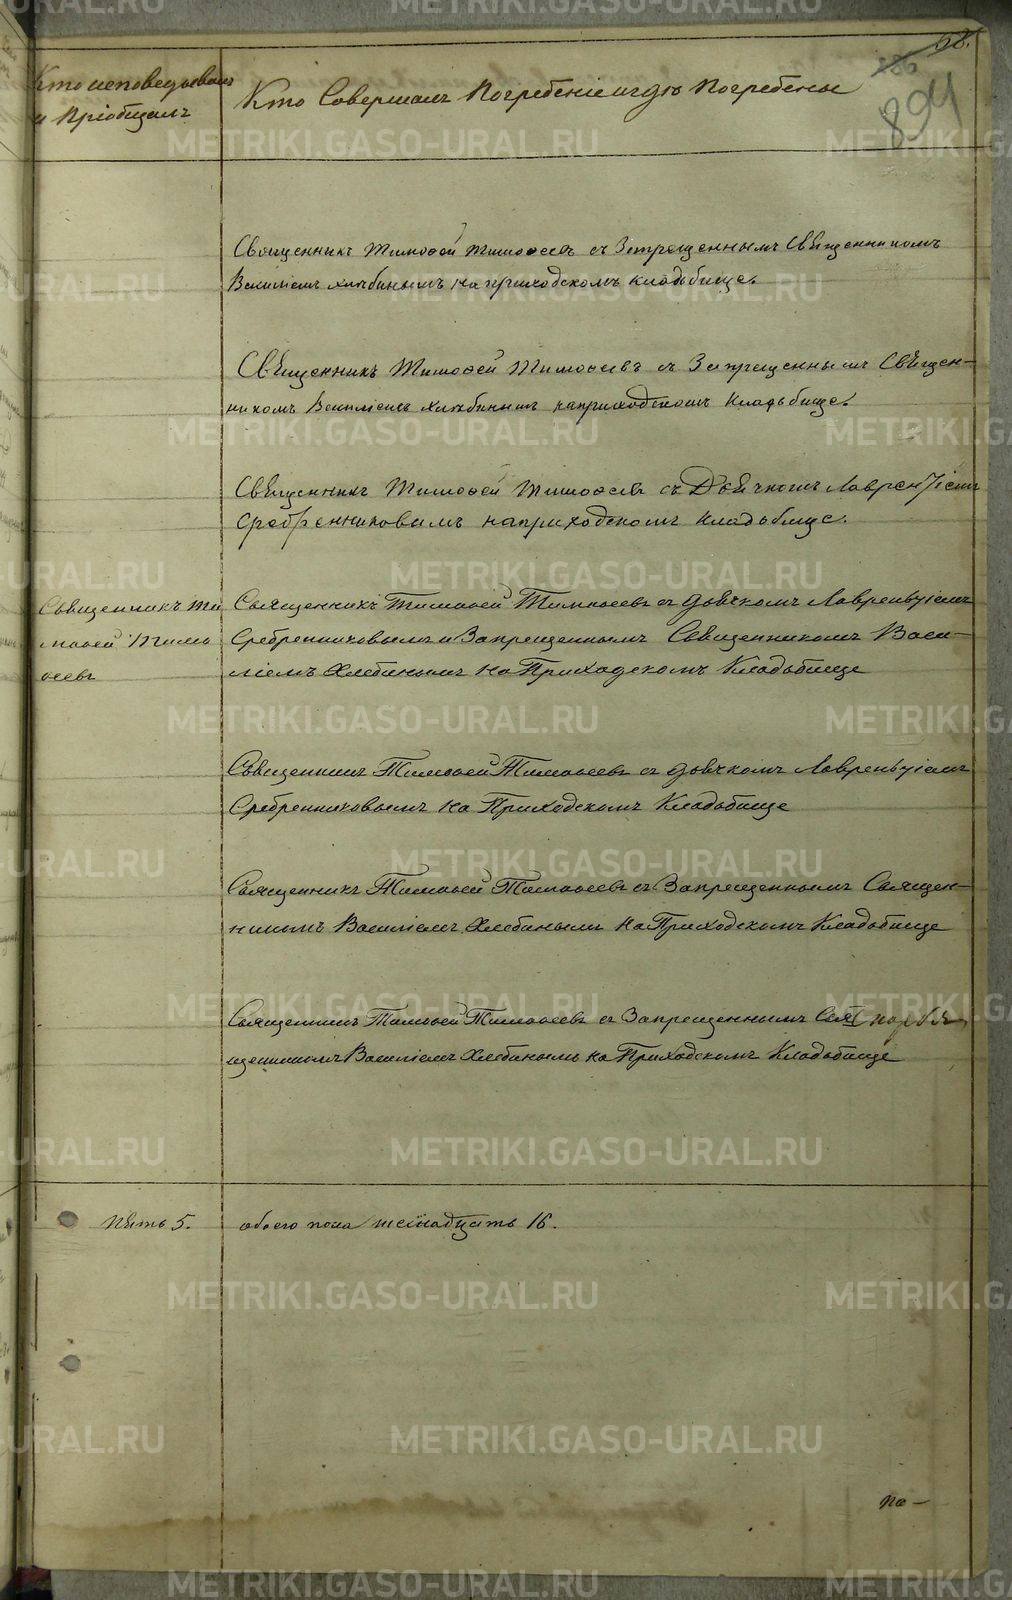 68.
286
894
Кто исповедывалъ
и Пріобщалъ
Кто Совершалъ Погребеніе и гдѣ Погребены
Священникъ Тимофей Тимофеевъ съ Запрещеннымъ Священникомъ
Василіемъ Хлѣбинымъ на приходскомъ кладьбище.
Священникъ Тимофей Тимофеевъ съ Запрещеннымъ Священ-
никомъ Василіемъ Хлѣбинымъ на приходскомъ кладьбище.
Священникъ Тимофей Тимофеевъ съ Дьячкомъ Лаврентіемъ
Сребренниковымъ на приходскомъ кладьбище.
Священникъ Ти
мофей Тимо
феевъ
Священникъ Тимофей Тимофеевъ съ дьячкомъ Лаврентіемъ
Сребренниковымъ и Запрещеннымъ Священникомъ Васи-
ліемъ Хлебинымъ на Приходскомъ Кладбище
Священникъ Тимофей Тимофеевъ съ дьячкомъ Лаврентіемъ
Сребренниковымъ на Приходскомъ Кладбище
Священникъ Тимофей Тимофеевъ съ Запрещеннымъ Священ-
никомъ Василіемъ Хлебинымъ на Приходскомъ Кладбище
Священникъ Тимофей Тимофеевъ съ Запрещеннымъ Свя
щенникомъ Василіемъ Хлебинымъ на Приходскомъ Кладбище
Пять 5.
обоего пола шеснадцать 16.
по-
METRIKI.GASO-URAL.RU